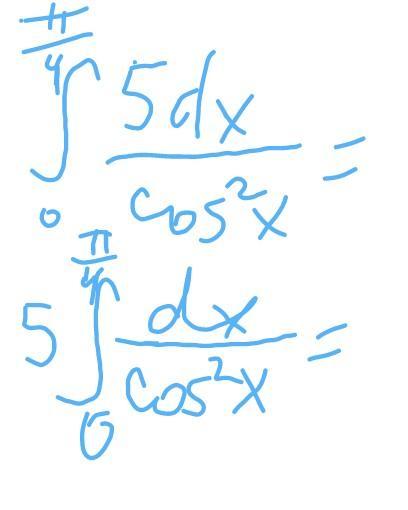 ∫₀^(π/4) 5dx/cos²x =
5 ∫₀^(π/4) dx/cos²x =